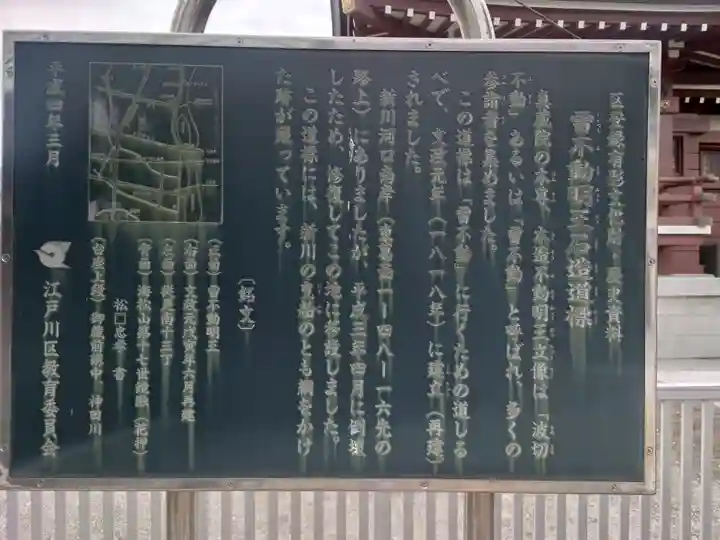 区登録有形文化財・歴史資料
雷不動明王石造道標
真蔵院の本尊、木造不動明王立像は「波切
不動」あるいは「雷不動」と呼ばれ、多くの
参詣者を集めました。
この道標は「雷不動」に行くための道しる
べで、文政元年（一八一八年）に建立（再建）
されました。
新川河口南岸（東葛西一ー四八ー一六先の
路上）にありましたが、平成三年四月に倒壊
したため、修復してこの地に移設しました。
この道標には、新川の曳船のとも綱をかけ
た跡が残っています。
〔銘文〕
（正面）雷不動明王
（右面）文政元戊寅年六月再建
是より南十三丁
松口忠幸 書
（台座正面）御蔵前講中 神田川
平成四年三月
江戸川区教育委員会